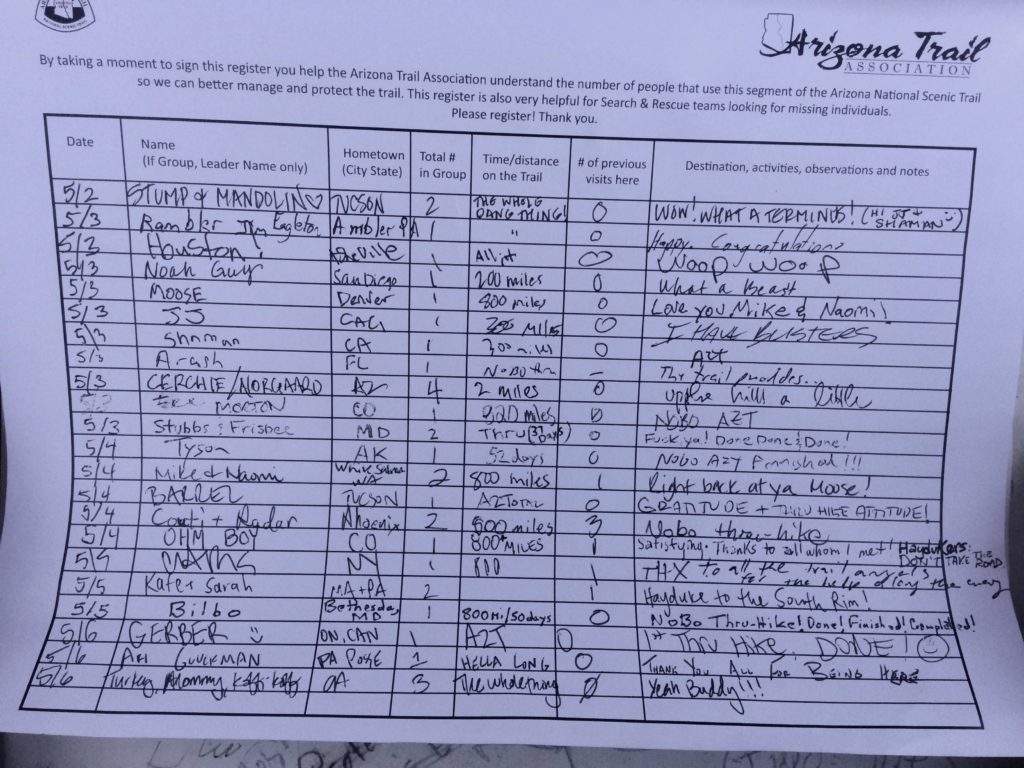 Arizona Trail
ASSOCIATION
By taking a moment to sign this register you help the Arizona Trail Association understand the number of people that use this segment of the Arizona National Scenic Trail
so we can better manage and protect the trail. This register is also very helpful for Search & Rescue teams looking for missing individuals.
Please register! Thank you.
Date Name (If Group, Leader Name only) Hometown (City State) Total # in Group Time/distance on the Trail # of previous visits here Destination, activities, observations and notes
5/2 STUMP & MANDOLIN♡ TUCSON 2 THE WHOLE DANG THING! 0 WOW! WHAT A TERMINUS! (HI JJ + SHAMAN :))
5/3 Rambler Jim Eagleton Ambler PA 1 " 0 Happy Congratulations
5/3 Houston! 1 All it 0 WOOP WOOP
5/3 Noah Guy San Diego 1 200 miles 0 What a Beast
5/3 MOOSE Denver 1 800 miles 0 Love you Mike & Naomi!
5/3 JJ 1 MILES 0 I HAVE BLISTERS
5/3 CA 1 300 miles 0 AZT
5/3 Arash FL 1 NOBO thru - The trail provides...
5/3 CERCHIE/NORGAARD AZ 4 2 miles 0 up the hills a little
MORTON CO 1 820 miles 0 NOBO AZT
5/3 Stubbs & Frisbee MD 2 Thru (37 Days) 0 Fuck ya! Done Done & Done!
5/4 Tyson AK 1 52 days 0 Nobo AZT Finnished!!!
5/4 Mike & Naomi White Salmon WA 2 800 miles 1 Right back at ya Moose!
5/4 BARREL TUCSON 1 AZ TOTAL 0 GRATITUDE + THRU HIKE ATTITUDE!
5/4 + Radar Phoenix 2 800 miles 3 Nobo thru-hike
5/4 OHM BOY CO 1 800+ MILES 1 Satisfying. Thanks to all whom I met! Haydukers: DON'T TAKE THE ROAD.
5/5 1 1 THX to all the trail angels for the help along the way
5/5 Kate & Sarah MA + PA 2 1 Hayduke to the South Rim!
5/5 Bilbo Bethesda, MD 1 800mi/50days 0 NOBO Thru-Hike! Done! Finished! Completed!
5/6 GERBER :) ON, CAN 1 AZT 0 1st THRU HIKE, DONE! :)
5/6 GLUCKMAN PA POSSE 1 HELLA LONG 0 THANK YOU ALL FOR BEING HERE
5/6 Turkey, Mommy, 3 The whole thing 0 Yeah Buddy!!!